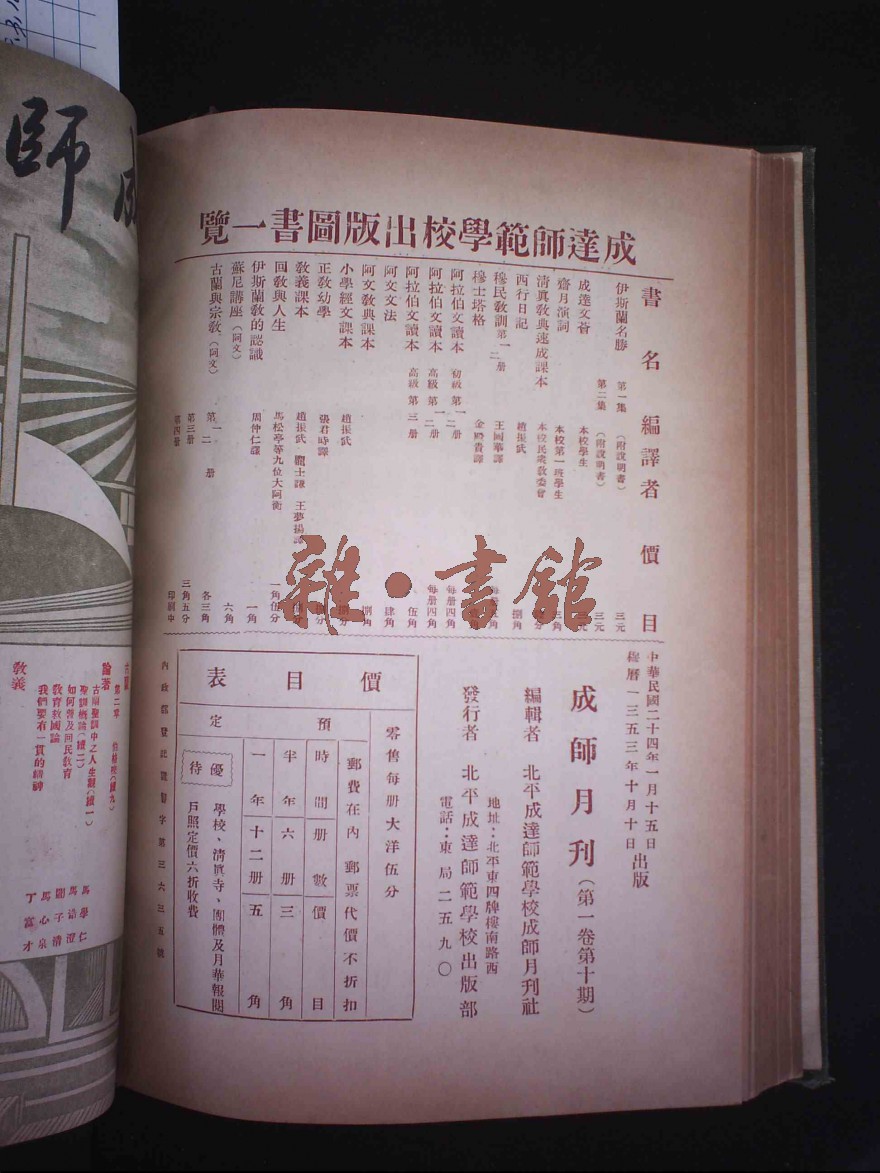 成達師範學校出版圖書一覽
書名 編譯者 價目
伊斯蘭名勝 第一集 (附說明書) 三元
第二集 (附說明書) 三元
成達文薈 本校學生
齋月演詞 本校第一班學生
清眞教典速成課本 本校民眾教委會
西行日記 趙振武 捌角
穆民教訓 第一二册 王國華譯
穆士塔格 金殿貴譯
阿拉伯文讀本 初級第一二册 每册四角
阿拉伯文讀本 高級第一二册 每册四角
阿拉伯文讀本 高級第三册 伍角
阿文文法 肆角
阿文教典課本 捌角
小學經文課本 趙振武
正教幼學 張君時譯
教義課本 趙振武 龐士謙 王夢揚
回教與人生 馬松亭等九位大阿衡 一角伍分
伊斯蘭教的認識 周仲仁譯 一角
蘇尼講座(阿文) 六角
古蘭與宗教(阿文) 第一二册 各三角
第三册 三角五分
第四册 印刷中
中華民國二十四年一月十五日
回曆一三五三年十月十日 出版
成師月刊(第一卷第十期)
編輯者 北平成達師範學校成師月刊社
地址:北平東四牌樓南路西
發行者 北平成達師範學校出版部
電話:東局二五九〇
價目表
零售每册大洋伍分
預定
郵費在內 郵票代價不折扣
時間 册數 價目
半年 六册 三角
一年 十二册 五角
優待
學校、清眞寺、團體及月華報閱
戶照定價六折收費
內政部登記證警字第三六三五號
雜·書館
成師
論著
古蘭聖訓中之人生觀(續一)
聖訓概論(續二)
如何普及回民教育
教育救國論
我們要有一貫的精神
教義
馬學仁
馬浩澄
閻子清
馬心泉
丁富才